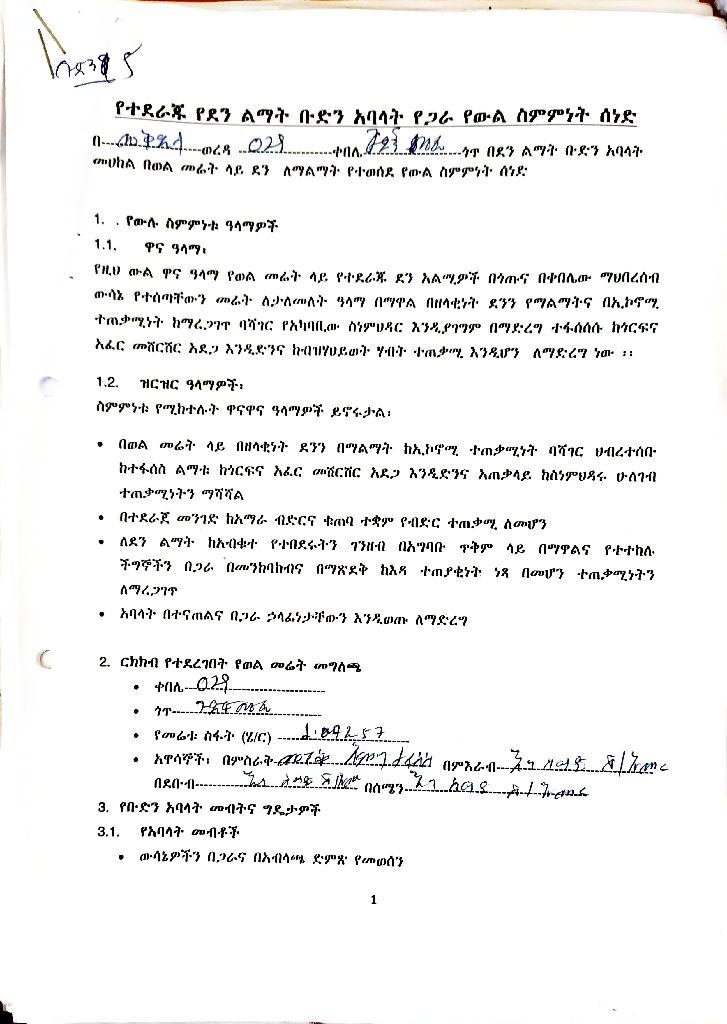 ቡድን 5
የተደራጁ የደን ልማት ቡድን አባላት የጋራ የውል ስምምነት ሰነድ
በ---------ወረዳ 029 ---------ቀበሌ---------ጎጥ በደን ልማት ቡድን አባላት
መሀከል በወል መሬት ላይ ደን ለማልማት የተወሰደ የውል ስምምነት ሰነድ
1. . የውሉ ስምምነቱ ዓላማዎች
1.1. ዋና ዓላማ፡
የዚህ ውል ዋና ዓላማ የወል መሬት ላይ የተደራጁ ደን አልሚዎች በጎጡና በቀበሌው ማህበረሰብ
ውሳኔ የተሰጣቸውን መሬት ለታለመለት ዓላማ በማዋል በዘላቂነት ደንን የማልማትና በኢኮኖሚ
ተጠቃሚነት ከማረጋገጥ ባሻገር የአካባቢው ስነምህዳር እንዲያገግም በማድረግ ተፋሰሰሱ ከጎርፍና
አፈር መሸርሸር አደጋ እንዲድንና ከብዝሃህይወት ሃብት ተጠቃሚ እንዲሆን ለማድረግ ነው ፡፡
1.2. ዝርዝር ዓላማዎች፡
ስምምነቱ የሚከተሉት ዋናዋና ዓላማዎች ይኖሩታል፡
• በወል መሬት ላይ በዘላቂነት ደንን በማልማት ከኢኮኖሚ ተጠቃሚነት ባሻገር ህብረተሰቡ
ከተፋሰስ ልማቱ ከጎርፍና አፈር መሸርሸር አደጋ እንዲድንና አጠቃላይ ከስነምህዳሩ ሁለገብ
ተጠቃሚነትን ማሻሻል
• በተደራጀ መንገድ ከአማራ ብድርና ቁጠባ ተቋም የብድር ተጠቃሚ ለመሆን
• ለደን ልማት ከአብቁተ የተበደሩትን ገንዘብ በአግባቡ ጥቅም ላይ በማዋልና የተተከሉ
ችግኞችን በጋራ በመንከባከብና በማጽደቅ ከእዳ ተጠያቂነት ነጻ በመሆን ተጠቃሚነትን
ለማረጋገጥ
• አባላት በተናጠልና በጋራ ኃላፊነታቸውን እንዲወጡ ለማድረግ
2. ርክክብ የተደረገበት የወል መሬት መግለጫ
• ቀበሌ 029
• ጎጥ
• የመሬቱ ስፋት (ሄ/ር) 1.09257
• አዋሳኞች፡ በምስራቅ --------- በምእራብ ---------
በደቡብ --------- በሰሜን ---------
3. የቡድን አባላት መብትና ግዴታዎች
3.1. የአባላት መብቶች
• ውሳኔዎችን በጋራና በአብላጫ ድምጽ የመወሰን
1